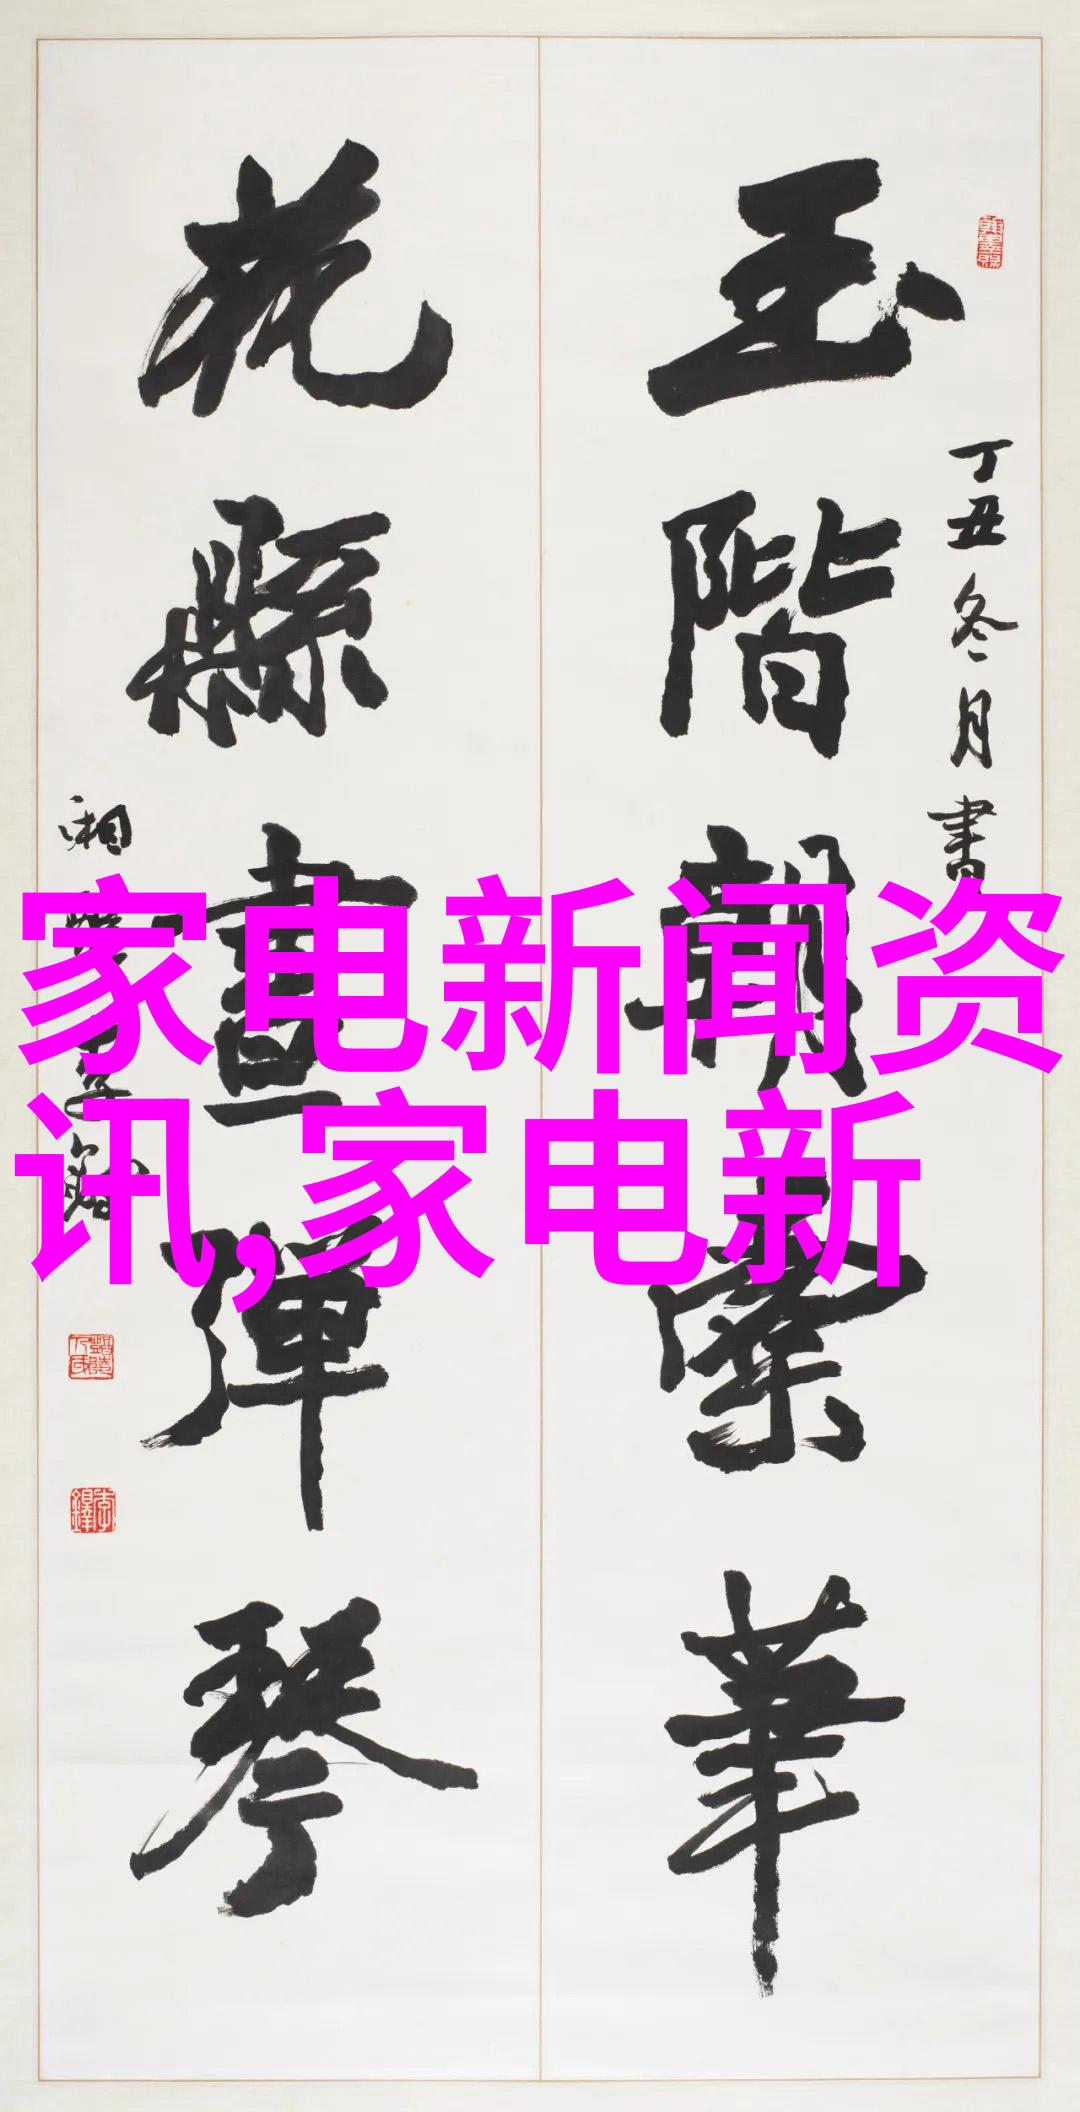 玉階朝華
丁丑冬月書
花縣晝彈琴
湘
李鐸
家电新闻资
讯,家电新